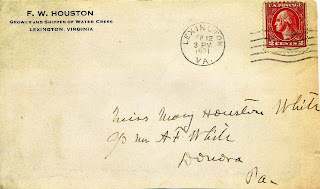 F. W. HOUSTON
GROWER AND SHIPPER OF WATER CRESS
LEXINGTON, VIRGINIA
LEXINGTON
12
3 PM
1921
VA.
U.S. POSTAGE
2 CENTS 2
Miss Mary Houston White
c/o Mr A F White
Donora
Pa.